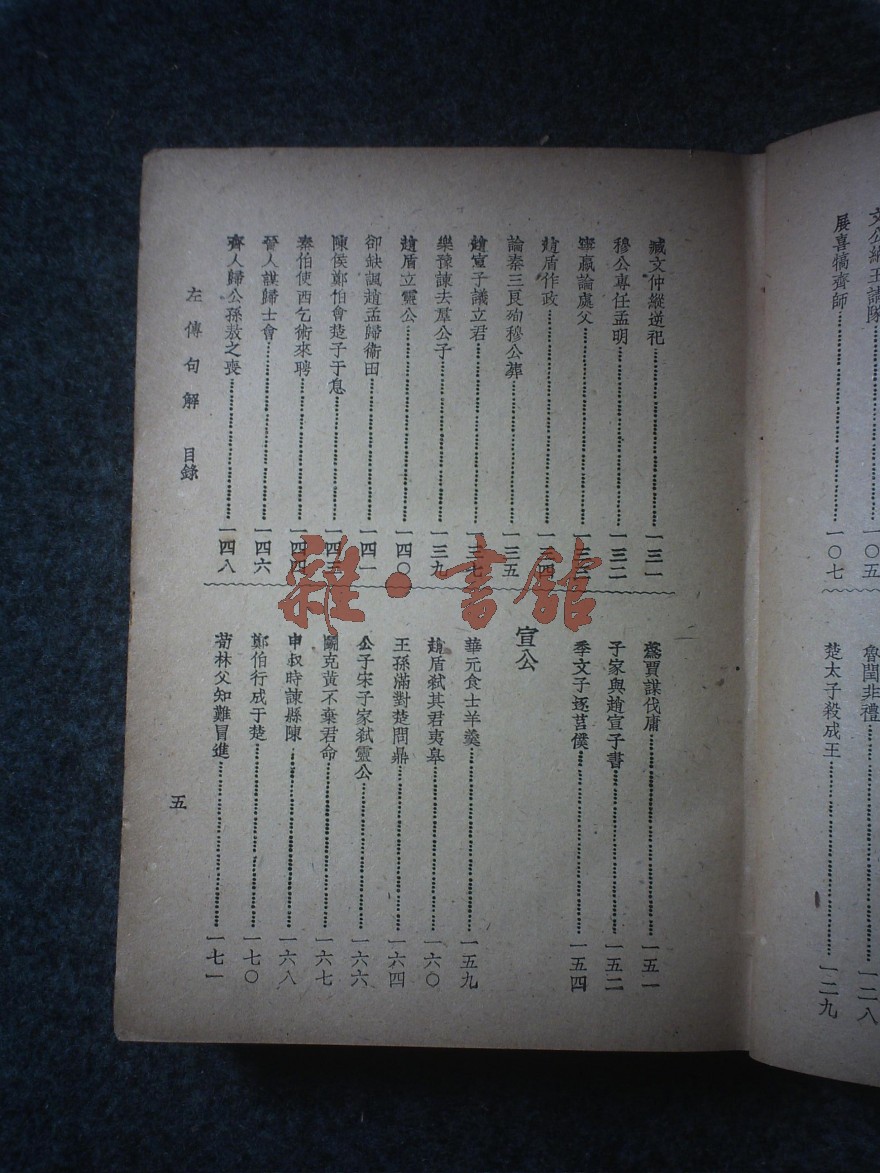 文公納王請隧……一〇五
展喜犒齊師……一〇七
魯閏非禮……一二八
楚太子殺成王……一二九
臧文仲縱逆祀……一三一
穆公專任孟明……一三二
甯嬴論處父……一三三
趙盾作政……一三四
論秦三良殉穆公葬……一三五
趙宣子議立君……一三七
樂豫諫去羣公子……一三九
趙盾立靈公……一四〇
卻缺諷趙孟歸衞田……一四一
陳侯鄭伯會楚子于息……一四三
秦伯使西乞術來聘……一四四
晉人謀歸士會……一四六
齊人歸公孫敖之喪……一四八
蔿賈謀伐庸……一五一
子家與趙宣子書……一五二
季文子逐莒僕……一五四
宣公
華元食士羊羹……一五九
趙盾弒其君夷皋……一六〇
王孫滿對楚問鼎……一六四
公子宋子家弒靈公……一六六
鬭克黃不棄君命……一六七
申叔時諫縣陳……一六八
鄭伯行成于楚……一七〇
荀林父知難冒進……一七一
左傳句解 目錄
五
雜·書館